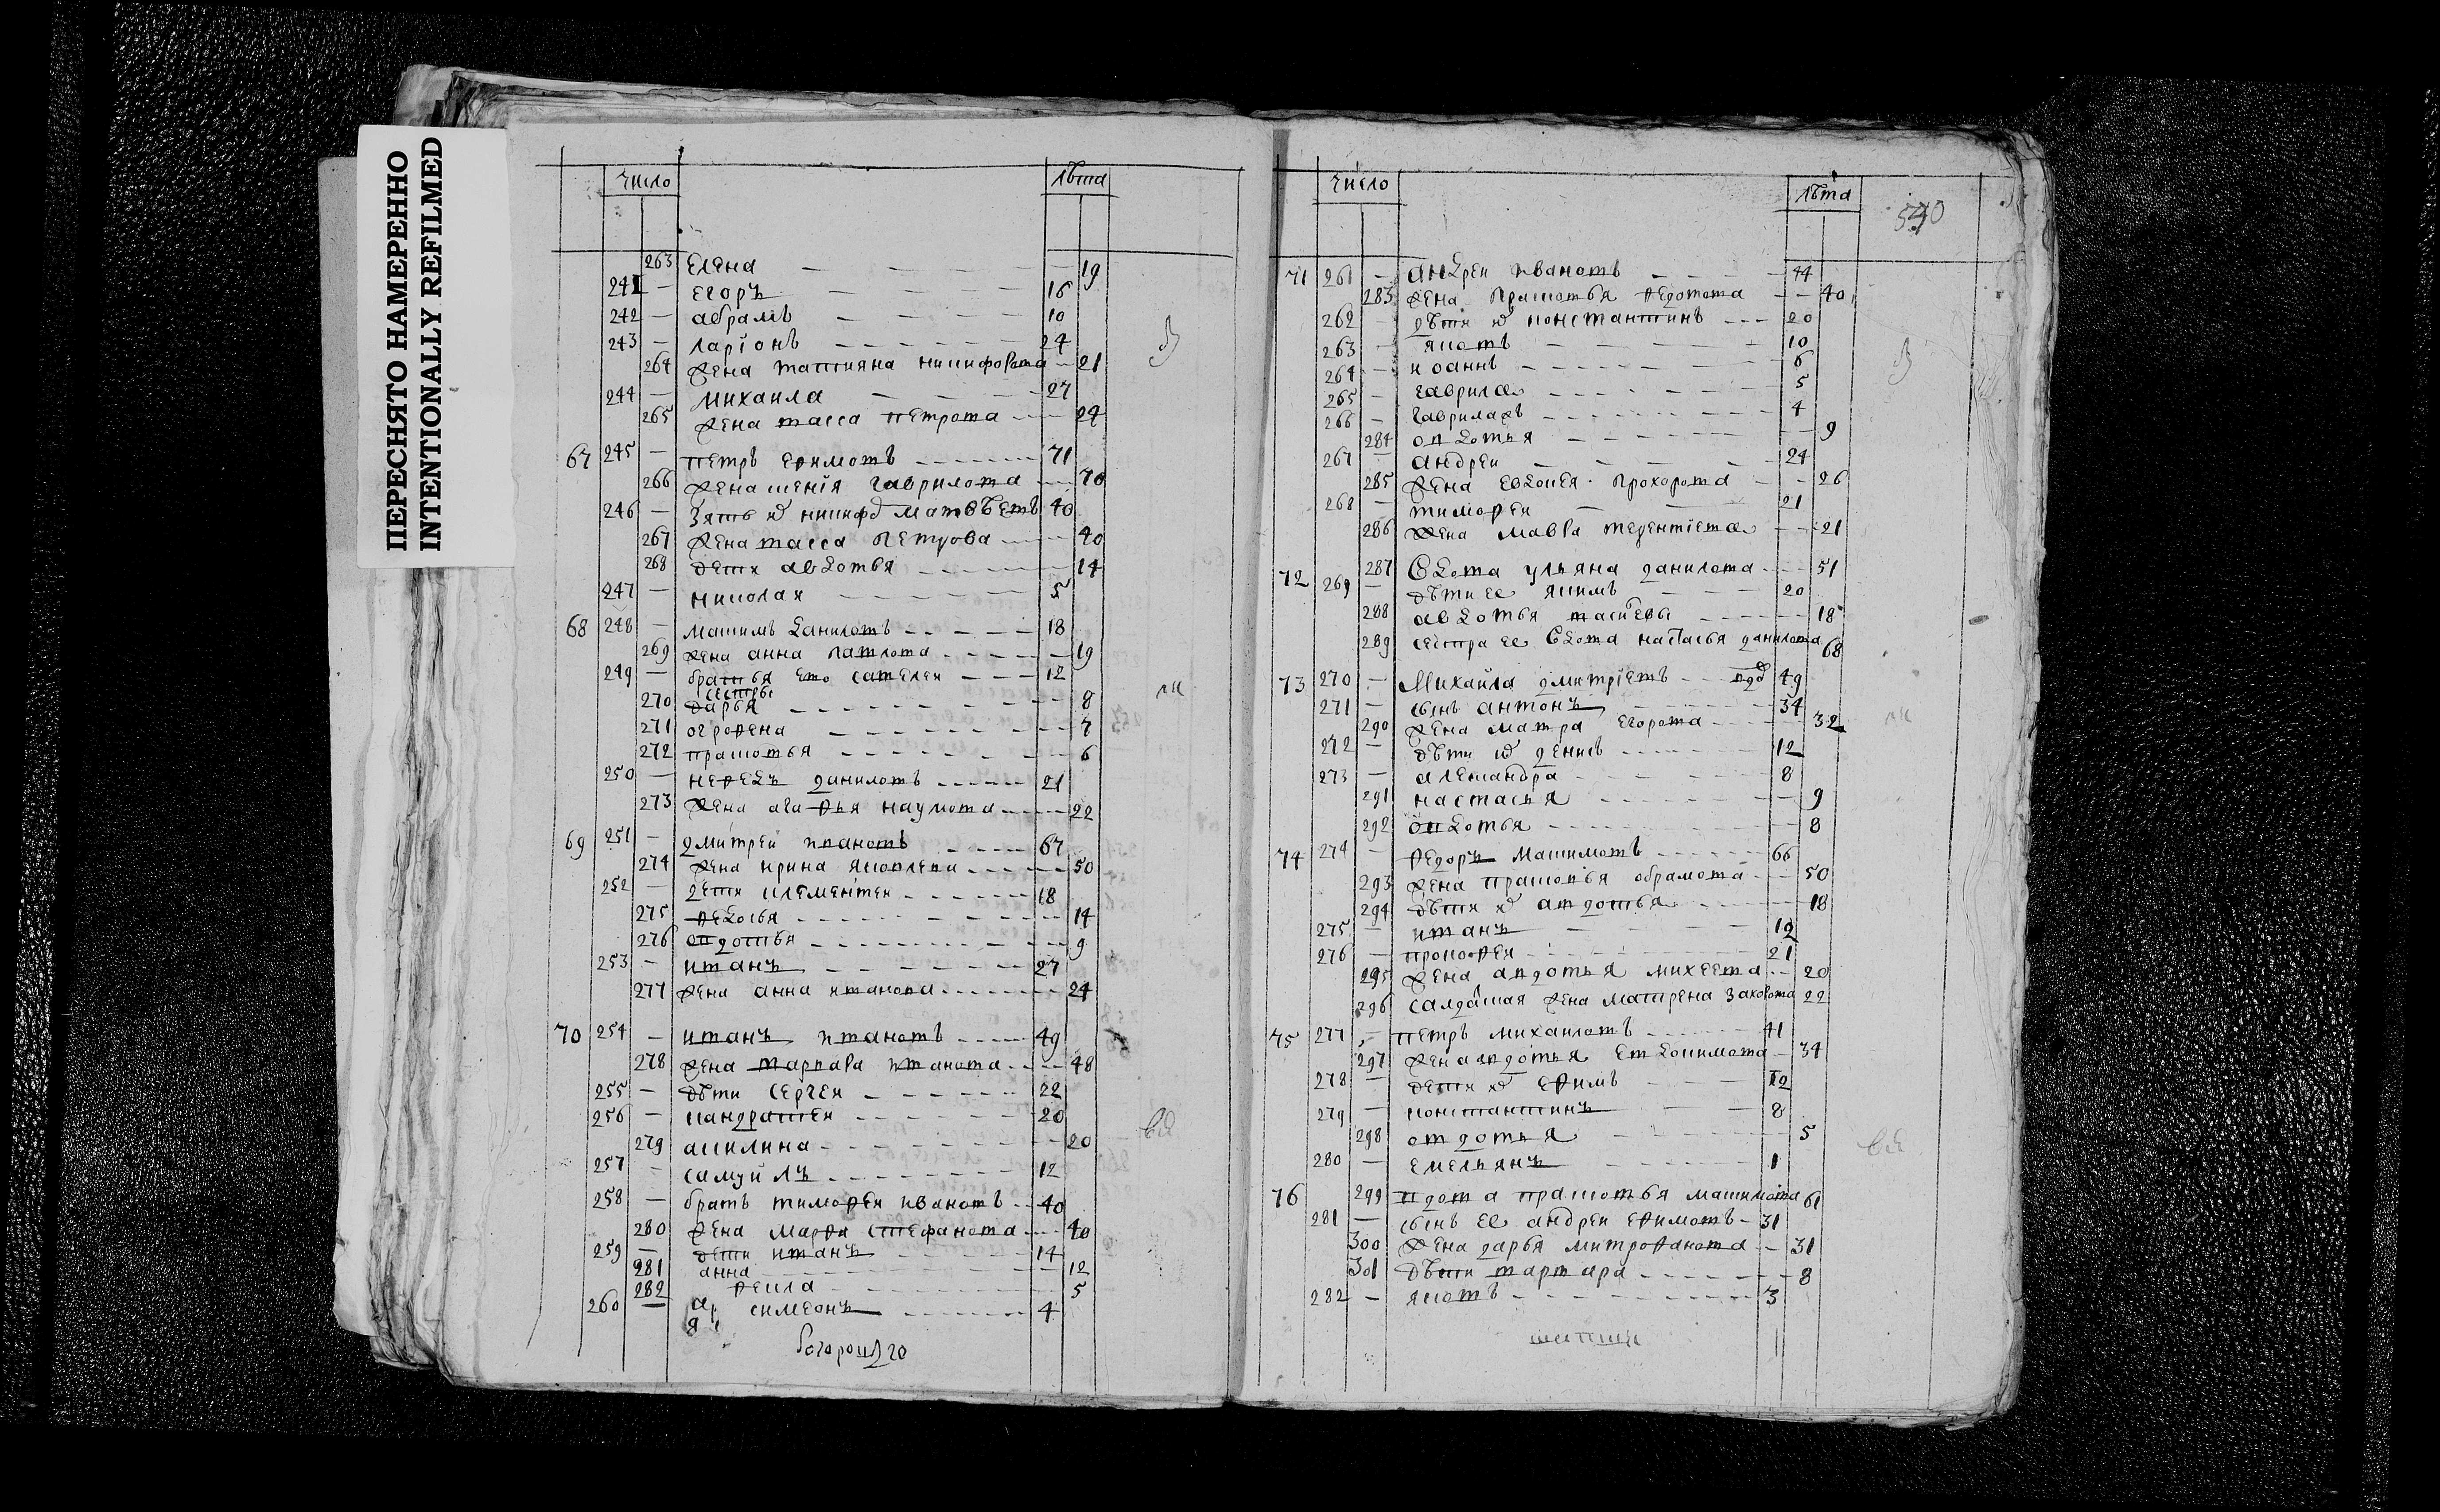 ПЕРЕСНЯТО НАМЕРЕННО
INTENTIONALLY REFILMED
число лѣта
263 Елена 19
241 — егоръ 16
242 — абрамъ 10
243 — ларіонъ 24
264 жена татияна никифорова 21
244 — михаила 27
265 жена васса петрова 24
67 245 — петръ ефимовъ 71
266 жена гаврилова 70
246 — зять их никифо матвѣевъ 40
267 жена васса петрова 40
268 дети авдотья 14
247 — николая 5
68 248 — максимъ даниловъ 18
269 жена анна павлова 19
249 — братья ево савелеи 12
сестры
270 дарья 8
271 огрофена 7
272 прасковья 6
250 — нефедъ даниловъ 21
273 жена агафья наумова 22
69 251 — дмитреи ивановъ 67
274 жена ирина яковлева 50
252 — дети клементеи 18
275 федосья 14
276 овдотья 9
253 — иванъ 27
277 жена анна иванова 24
70 254 — иванъ ивановъ 49
278 жена варвара иванова 48
255 — дѣти сергеи 22
256 — кандратеи 20
279 акилина 20
257 — самуйлъ 12
258 — братъ тимофеи ивановъ 40
280 жена марфа стефанова 40
259 — дети иванъ 14
281 анна 12
282 фекла 5
260 — симеонъ 4
число лѣта
540
71 261 — андреи ивановъ 44
283 жена прасковья федотова 40
262 — дѣти их константинъ 20
263 — яковъ 10
264 — иоаннъ 6
265 — гаврила 5
266 — 4
284 овдотья 9
267 — андреи 24
285 жена прохорова 26
268 — тимофеи 21
286 жена мавра терентіева 21
72 287 вдова ульяна данилова 51
269 — дѣти ее якимъ 20
288 авдотья 18
289 сестра ее вдова настасья данилова 68
73 270 — Михайла дмитріевъ 49
271 — сынъ антонъ 34
290 жена матра егорова 32
272 — дѣти их денисъ 12
273 — александра 8
291 настасья 9
292 овдотья 8
74 274 — федоръ максимовъ 66
293 жена прасковья обрамова 50
294 дѣти их авдотья 18
275 — иванъ 12
276 — прокофеи 21
295 жена авдотья михеева 20
296 салдацкая жена матрена захорова 22
75 277 — петръ михаиловъ 41
297 жена авдотья евдокимова 34
278 — дети их ефимъ 12
279 — константинъ 8
298 овдотья 5
280 — емельянъ 1
76 299 вдова прасковья максимова 61
281 — сынъ ее андреи ефимовъ 31
300 жена дарья митрофанова 31
301 дѣти варвара 8
282 — яковъ 3